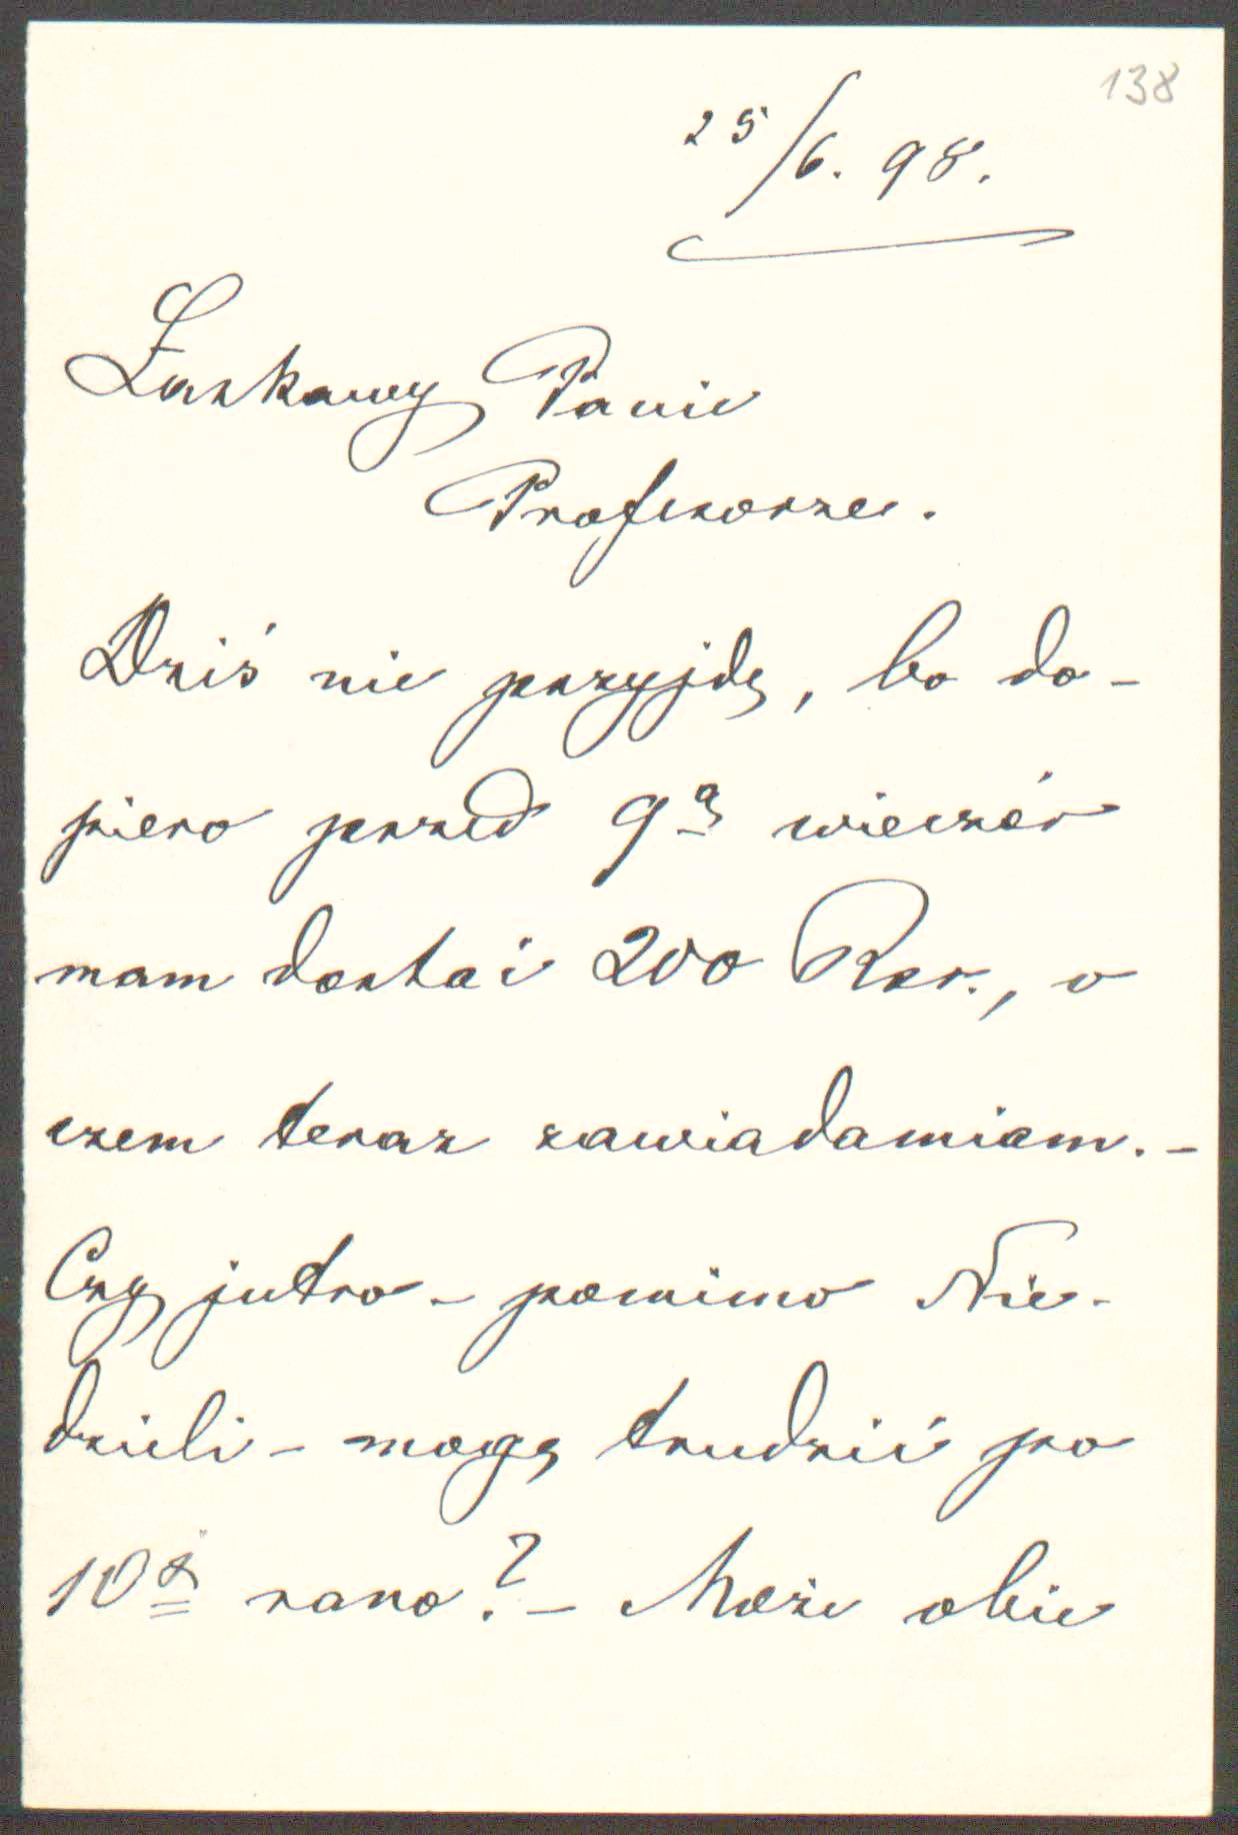 138
25/6. 98.
Łaskawy Panie
Profesorze.
Dziś nie przyjdę, bo do-
piero przed 9ą wieczór
mam dostać 200 Rsr., o
czem teraz zawiadamiam. -
Czy jutro - pomimo Nie-
dzieli - mogę trudzić po
10ej rano? - Może obie